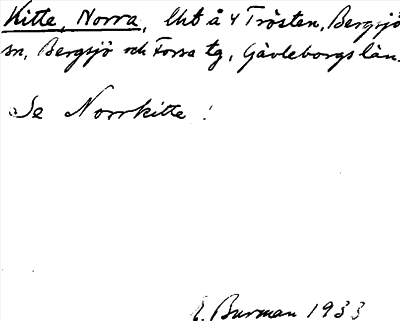 Kitte, Norra, lht å 4 Trösten, Bergsjö
sn, Bergsjö och Forsa tg, Gävleborgs län.
Se Norrkitte !
E. Burman 1933